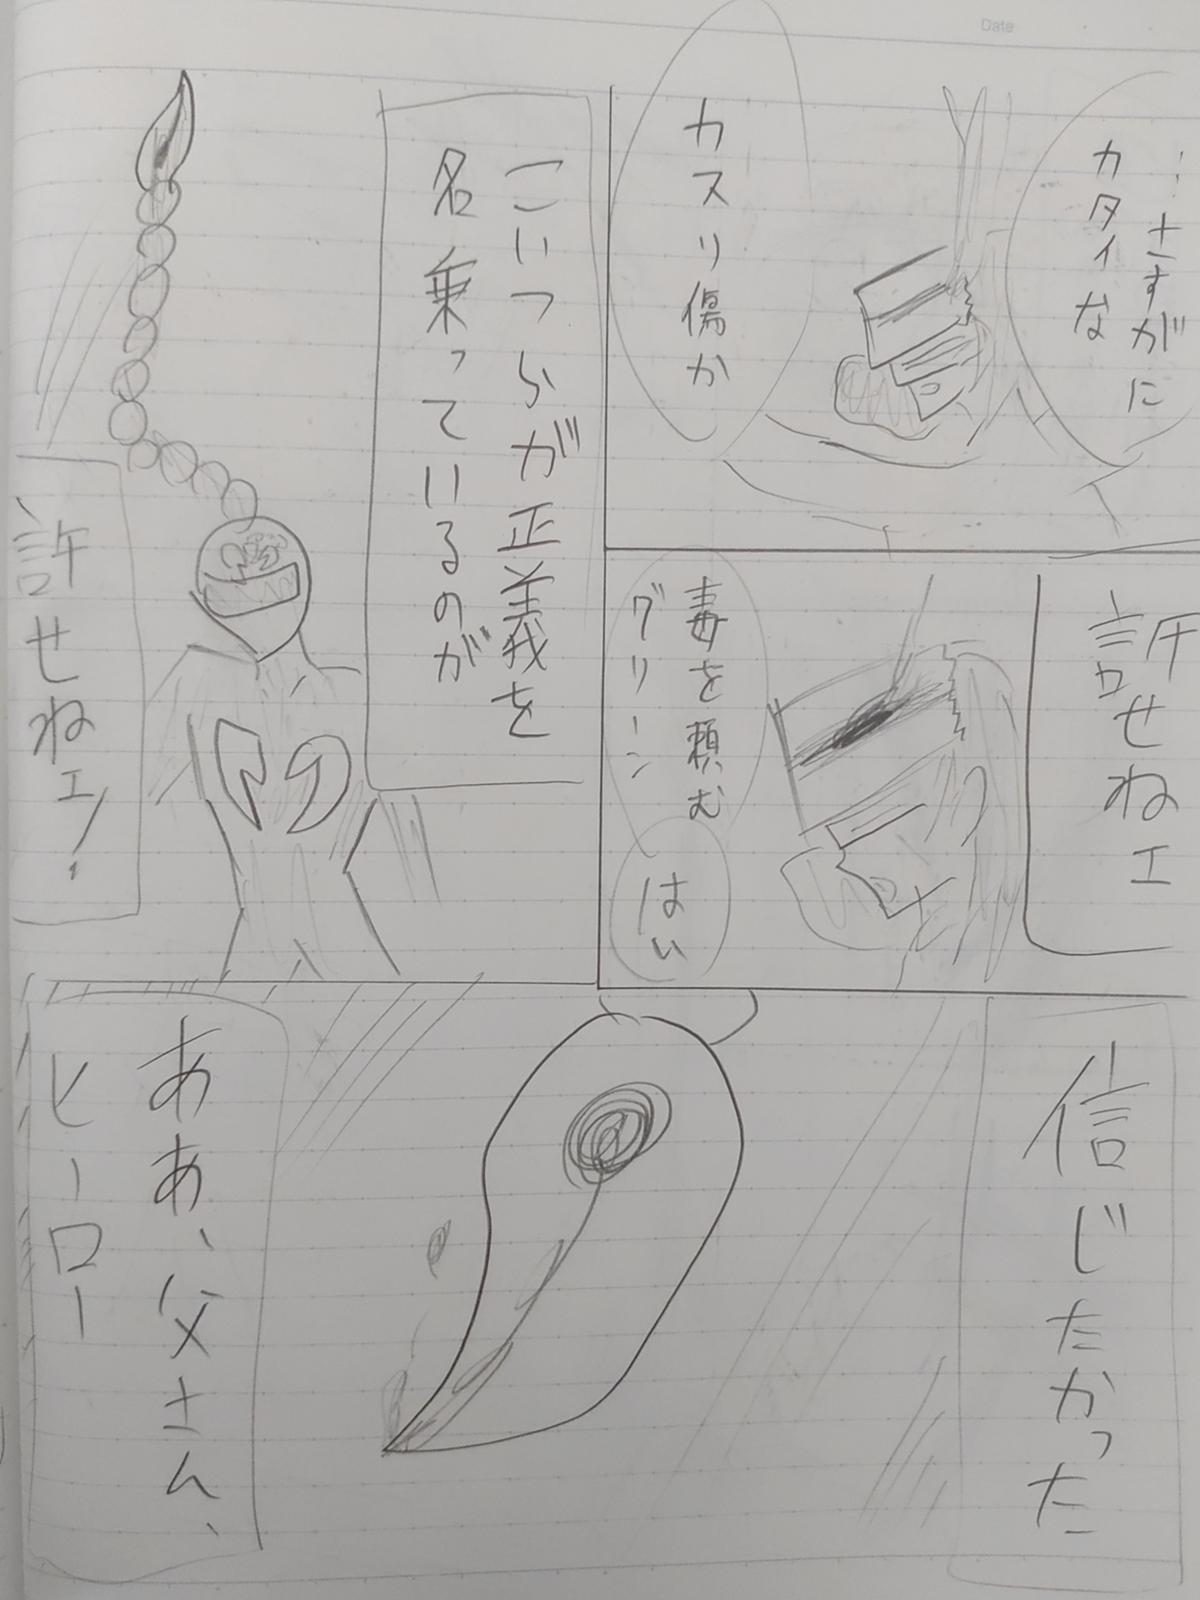 Date
…さすがに
カタイな
カスリ傷か
許せねェ
毒を頼む
グリーン
はい
こいつらが正義を
名乗っているのが
許せねェ!
信じたかった
ああ、父さん、
ヒーロー